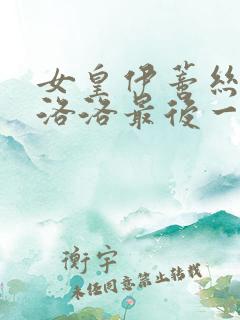 女皇伊蒂絲
洛洛最後一
衡宇
未经同意禁止转载